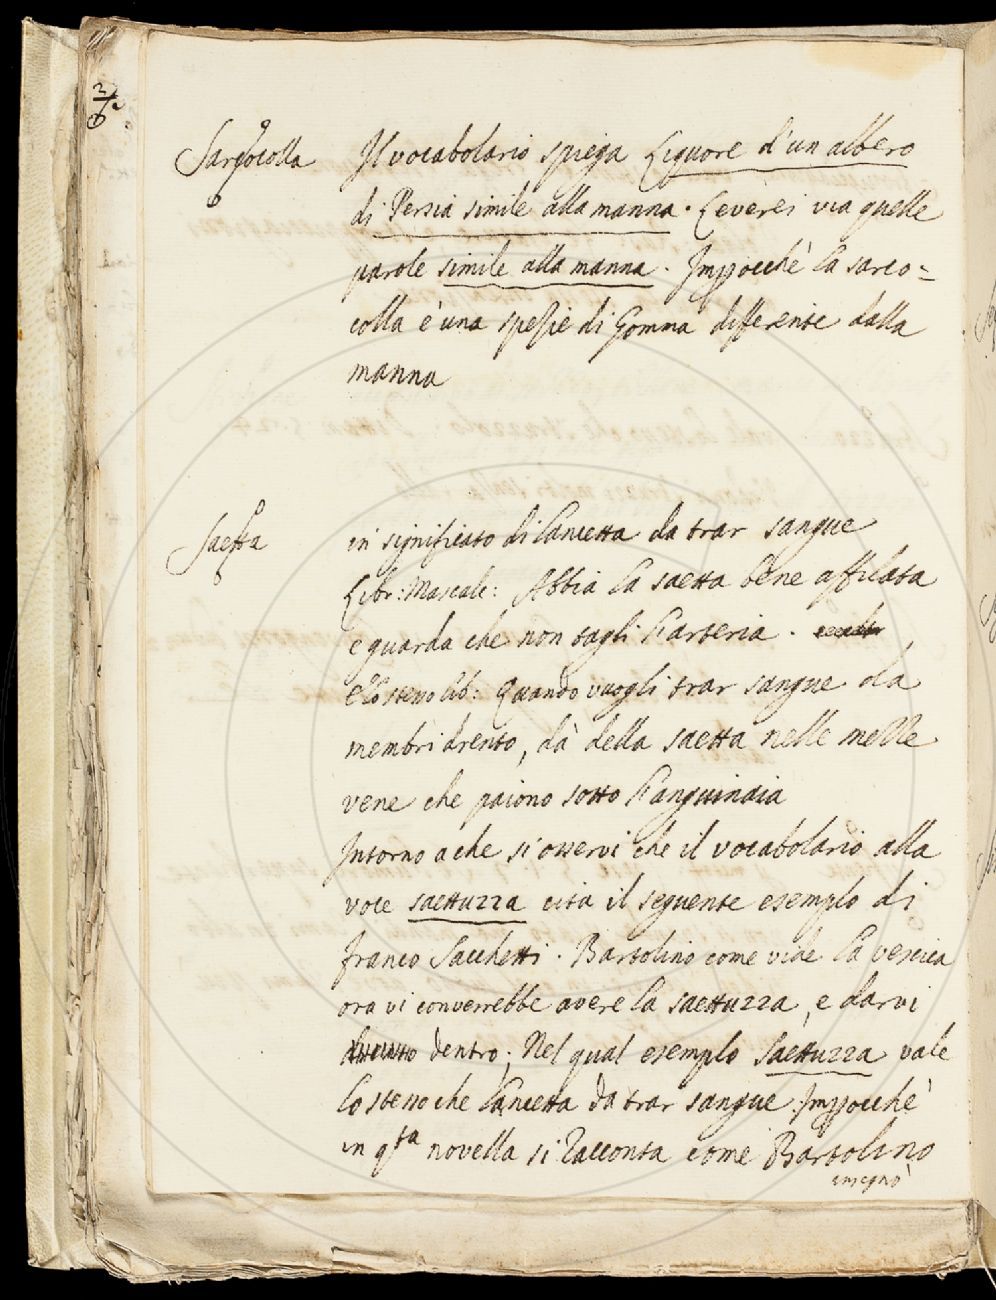 Sarcocolla
Il vocabolario spiega Liquore d'un albero
di Persia simile alla manna. Leverei via quelle
parole simile alla manna. Imppocchè la sarco=
colla è una spezie di Gomma differente dalla
manna
Saetta
in significato di lancetta da trar sangue
Libr: Mascalc: Abbia la saetta bene affilata
e guarda che non tagli l'arteria.
E lo stesso lib: Quando vuogli trar sangue da
membri drento, dà della saetta nelle
vene che paiono sotto l'anguinaia
Intorno a che si osservi che il vocabolario alla
voce saettuzza cita il seguente esempio di
franco Sacchetti. Bartolino come vide la vescica
ora vi converrebbe avere la saettuzza, e darvi
dentro; Nel qual esempio Saettuzza vale
lo stesso che lancetta da trar sangue Imppocchè
in qsta novella si racconta come Bartolino
insegnò